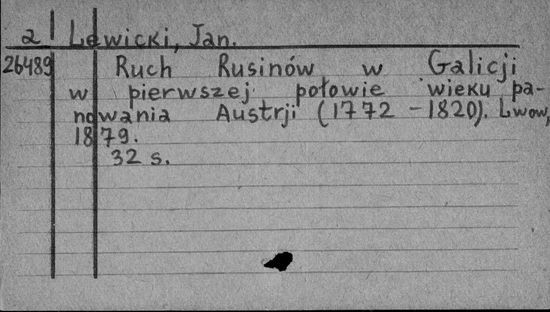 2 Lewicki, Jan.
26489 Ruch Rusinów w Galicji
w pierwszej połowie wieku pa-
nowania Austrji (1772 - 1820). Lwow,
1879.
32 s.